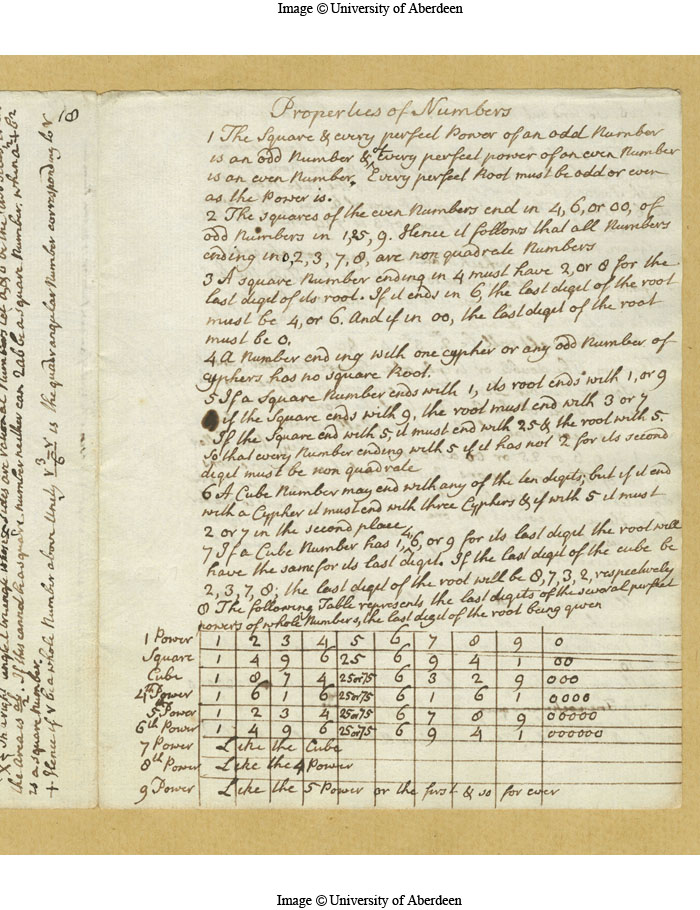 Image © University of Aberdeen
18
Properties of Numbers
1 The Square & every perfect Power of an odd Number
is an odd Number & Every perfect power of an even Number
is an even Number. Every perfect Root must be odd or even
as the Power is.
2 The squares of the even Numbers end in 4, 6, or 00, of
odd Numbers in 1, 25, 9. Hence it follows that all Numbers
ending in 0, 2, 3, 7, 8, are non quadrate Numbers
3 A square Number ending in 4 must have 2, or 8 for the
last digit of its root. If it ends in 6, the last digit of the root
must be 4, or 6. And if in 00, the last digit of the root
must be 0.
4 A Number ending with one cypher or any odd Number of
cyphers has no square Root.
5 If a Square Number ends with 1, its root ends with 1, or 9
if the Square ends with 9, the root must end with 3 or 7
If the Square end with 5, it must end with 25 & the root with 5.
So that every Number ending with 5 if it has not 2 for its second
digit must be non quadrate
6 A Cube Number may end with any of the ten digits; but if it end
with a Cypher it must end with three Cyphers & if with 5 it must
2 or 7 in the second place
7 If a Cube Number has 1, 4, 6, or 9 for its last digit the root will
have the same for its last digit. If the last digit of the cube be
2, 3, 7, 8, the last digit of the root will be 8, 7, 3, 2, respectively
8 The following Table represents the last digits of the several perfect
powers of whole Numbers, the last digit of the root being given
1 Power 1 2 3 4 5 6 7 8 9 0
Square 1 4 9 6 25 6 9 4 1 00
Cube 1 8 7 4 25 or 75 6 3 2 9 000
4th Power 1 6 1 6 25 or 75 6 1 6 1 0000
5th Power 1 2 3 4 25 or 75 6 7 8 9 00000
6th Power 1 4 9 6 25 or 75 6 9 4 1 000000
7 Power Like the Cube
8th Power Like the 4 Power
9 Power Like the 5 Power or the first & so for ever
right angled triangle whose sides are rational Numbers Let a, & b be the
the area is ab/2. If this cannot be a square number neither can 2ab be a square Number when a2 + b2
is a square Number.
+ Hence if v be a whole Number above Unity v3 - v/6 is the quadrangular Number corresponding to v
Image © University of Aberdeen